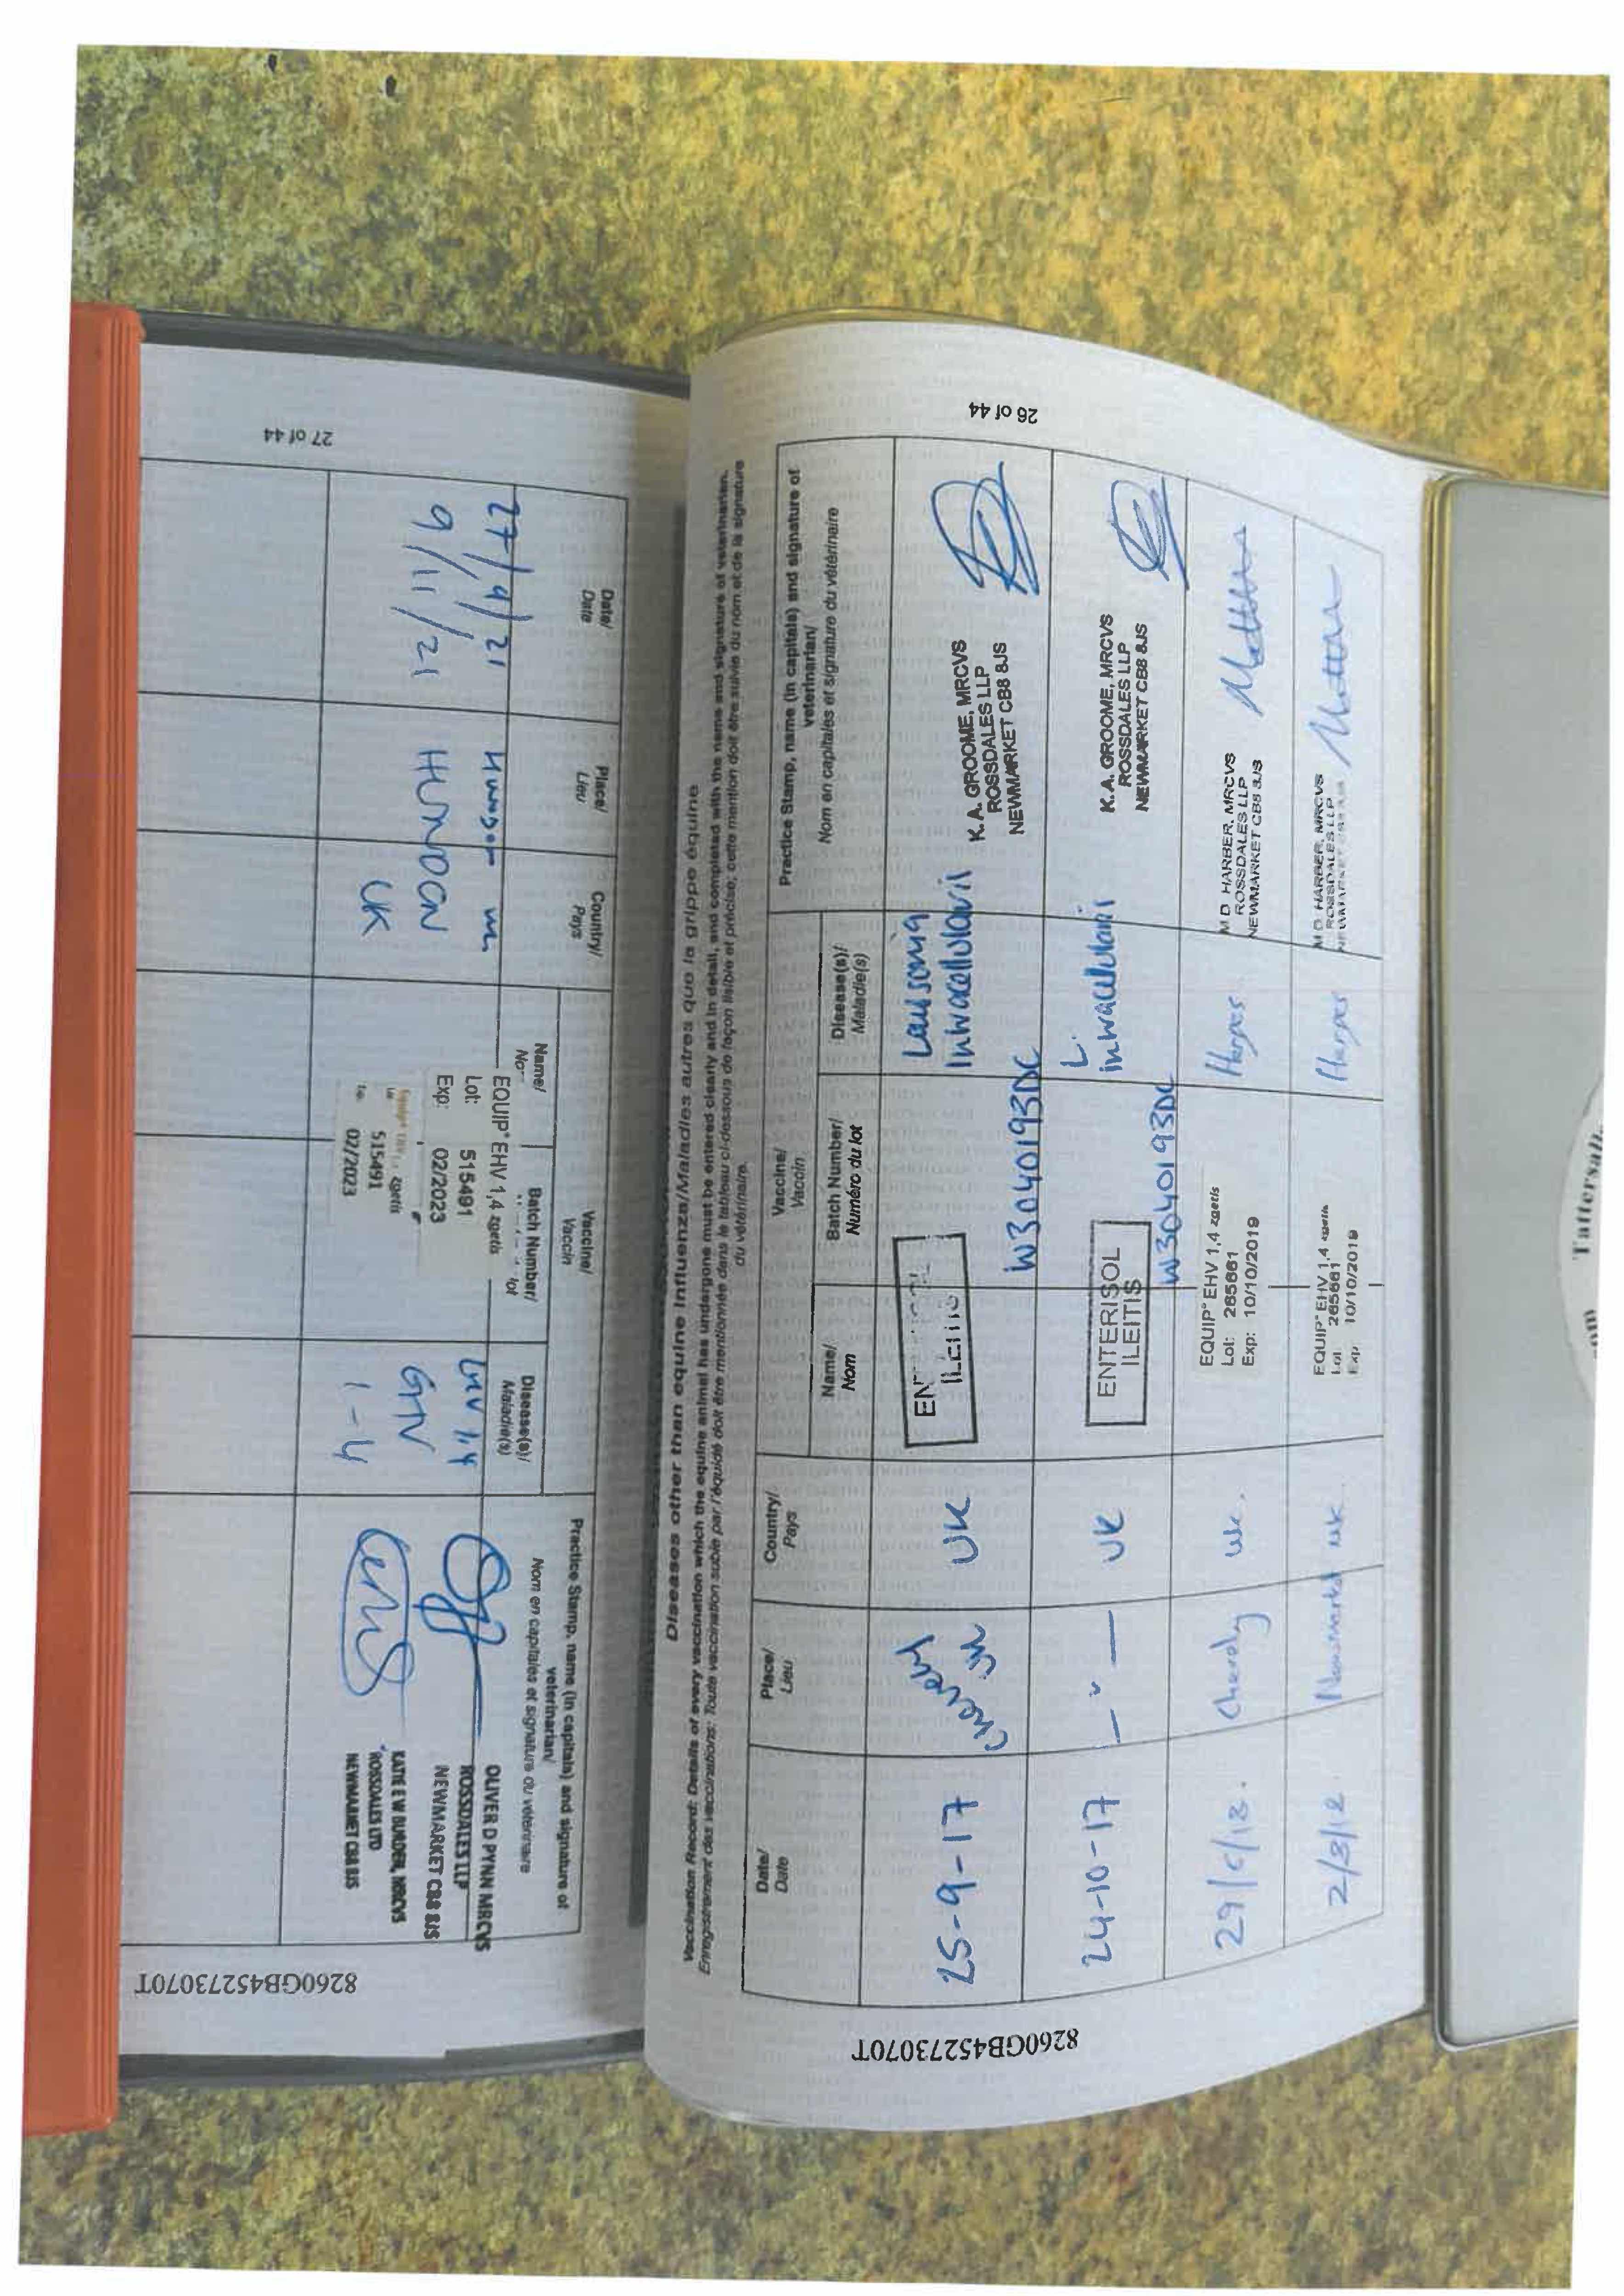 Diseases other than equine Influenza/Maladies autres que la grippe équine
Vaccination Record: Details of every vaccination which the equine animal has undergone must be entered clearly and in detail, and completed with the name and signature of veterinarian.
Enregistrement des vaccinations: Toute vaccination subie par l'équidé doit être mentionnée dans le tableau ci-dessous de façon lisible et précise; cette mention doit être suivie du nom et de la signature
du vétérinaire.
Date/ Date
Place/ Lieu
Country/ Pays
Vaccine/ Vaccin
Name/ Nom
Batch Number/ Numéro du lot
Disease(s)/ Maladie(s)
Practice Stamp, name (in capitals) and signature of
veterinarian/
Nom en capitales et signature du vétérinaire
25-9-17
UK
ILEITIS
W3040193DC
Lawsonia
Intracellularis
K. A. GROOME, MRCVS
ROSSDALES LLP
NEWMARKET CB8 8JS
24-10-17
— " —
UK
ENTERISOL
ILEITIS
W3040193DC
L.
intracellularis
K. A. GROOME, MRCVS
ROSSDALES LLP
NEWMARKET CB8 8JS
uk.
EQUIP® EHV 1,4 zoetis
Lot: 265661
Exp: 10/10/2019
Herpes
M D HARBER, MRCVS
ROSSDALES LLP
NEWMARKET CB8 8JS
Newmarket uk.
EQUIP® EHV 1,4 zoetis
Lot 265661
Exp: 10/10/2019
Herpes
M D HARBER, MRCVS
ROSSDALES LLP
26 of 44
8260GB45273070T
Date/ Date
Place/ Lieu
Country/ Pays
Vaccine/ Vaccin
Name/
Batch Number/
lot
Disease(s)/ Maladie(s)
Practice Stamp, name (in capitals) and signature of
veterinarian/
Nom en capitales et signature du vétérinaire
27/9/21
EQUIP® EHV 1,4 zoetis
Lot: 515491
Exp: 02/2023
EHV 1,4
OLIVER D PYNN MRCVS
ROSSDALES LLP
NEWMARKET CB8 8JS
9/11/21
HUNDON
UK
515491
02/2023
1-4
KATIE E W BURDER, MRCVS
ROSSDALES LTD
NEWMARKET CB8 8JS
27 of 44
8260GB45273070T
Tattersalls